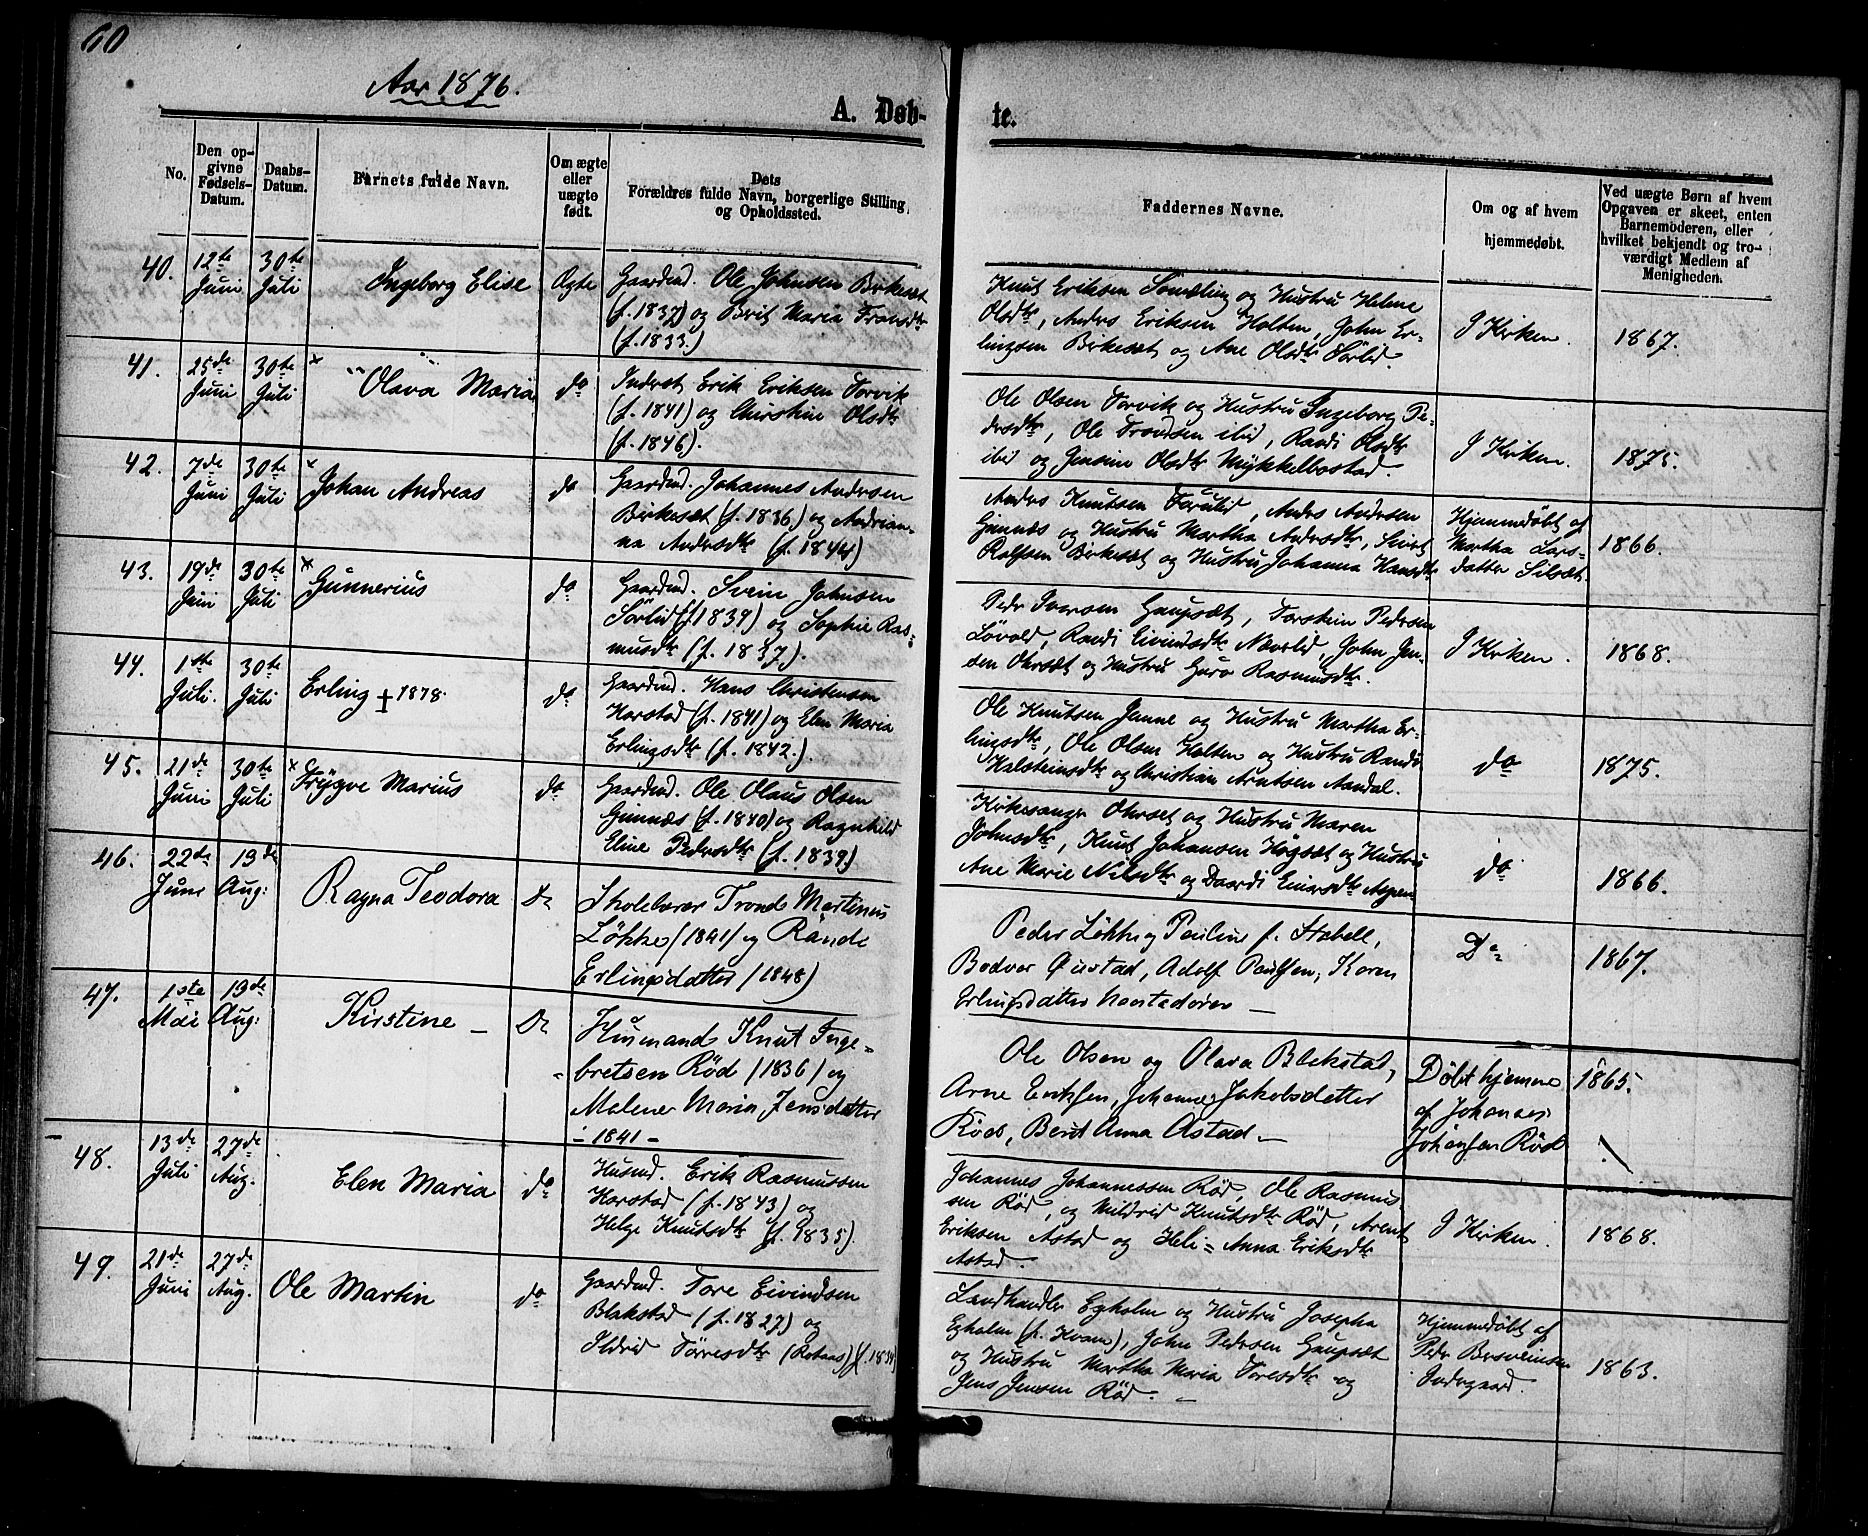 60
Aar 1876.
A. Døb-
te.
No.
Den op-
givne
Fødsels-
Datum.
Daabs-
Datum.
Barnets fulde Navn.
Om ægte
eller
uægte
født.
Dets
Forældres fulde Navn, borgerlige Stilling
og Opholdssted.
Faddernes Navne.
Om og af hvem
hjemmedøbt.
Ved uægte Børn af hvem
Opgaven er skeet, enten
Barnemoderen, eller
hvilket bekjendt og tro-
værdigt Medlem af
Menigheden.
40.
12te
Juni
30te
Juli
Ingeborg Elise
Ægte
Gaardmd. Ole Johnsen Birkesæt
(f. 1837) og Berit Maria Trondsdtr
(f. 1833.)
Knut Eriksen Sandling og Hustru Helene
Olsdtr, Anders Eriksen Holten, John Er-
lingsen Birkesæt og Ane Olsdtr Sørlid.
I Kirken.
1867.
41.
25de
Juni
30te
Juli
Olava Maria
do
Inderst Erik Eriksen Torvik
(f. 1841) og Chirstine Olsdtr
(f. 1846).
Ole Olsen Torvik og Hustru Ingeborg Pe-
dersdtr, Ole Trondsen ibid, Randi Olsdtr
ibid og Jensine Olsdtr Mykkelbostad.
I Kirken.
1875.
42.
7de
Juni
30te
Juli
Johan Andreas
do
Gaardmd. Johannes Andersen
Birkesæt (f. 1836.) og Andrian-
na Andersdtr (f. 1844)
Anders Knutsen Furulid, Anders Andersen
Gimnæs og Hustru Martha Andersdtr, Sivert
Rolfsen Birkesæt og Hustru Johanna Hansdtr
Hjemmedøbt af
Martha Lars-
datter Silsæt.
1866.
43.
19de
Juni
30te
Juli
Gunnerius
do
Gaardmd. Svein Johnsen
Sørlid (f. 1839) og Sophie Ras-
musdtr (f. 1837).
Peder Iversen Gaupsæt, Torstein Pedersen
Løvold, Randi Eivindsdtr Nøvrlid, John Jen-
sen Ohrsæt og Hustru Guro Rasmusdtr.
I Kirken.
1868.
44.
1ste
Juli.
30te
Juli
Erling + 1878.
do
Gaardmd. Hans Christensen
Harstad (f. 1841) og Elen Maria
Erlingsdtr (f. 1842.)
Ole Knutsen Janne og Hustru Martha Er-
lingsdtr, Ole Olsen Holten og Hustru Randi
Halsteinsdtr og Christian Arntsen Aandal.
do
1875.
45.
21de
Juni
30te
Juli
Trygve Marius
do
Gaardmd. Ole Olaus Olsen
Gimnæs (f. 1840) og Ragnhild
Eline Pedersdtr (f. 1839.)
Kirkesanger Ohrset og Hustru Maren
Johnsdtr, Knut Johansen Høgsæt og Hustru
Ane Marie Nilsdtr og Daardi Einarsdtr Aspen
do
1866.
46.
22de
Juni
13de
Aug:
Ragna Teodora
Do
Skolelærer Tronds Martinus
Løkke (1841) og Rande
Erlingsdatter (1848)
Peder Løkke og Pauline f. Stabell,
Bodvar Øustad, Adolf Paulsen, Karen
Erlingsdatter
Do
1867.
47.
1ste
Mai
13de
Aug:
Kirstine –
Do
Husmands Knut Inge-
bretsen Rød (1836) og
Malene Maria Jensdatter
- 1841 -
Ole Olsen og Olava Blekstad,
Arne Eriksen, Johanne Jakobsdatter
Rød, Berit Anna Astad –
Døbt hjemme
af Johannes
Johansen Rød
1865.
48.
13de
Juli
27de
Aug.
Elen Maria
do
Husmd. Erik Rasmussen
Harstad (f. 1843) og
Helge Knutsdtr (f. 1835).
Johannes Johannessen Rød, Ole Rasmus
sen Rød, og Mildrid Knutsdtr Rød, Arent
Eriksen Astad og Heli= Anna Eriksdtr
Astad.
I Kirken.
1868.
49.
21de
Juni
27de
Aug.
Ole Martin
do
Gaardmd. Tore Eivindsen
Blakstad (f. 1827) og
Ildrid Tørresdtr
Landhandler Egholm og Hustru Josepha
Egholm (f. Kvam), John Pedersen Gaupsæt
og Hustru Martha Maria Toresdtr og
Jens Jensen Rød. –
Hjemmedøbt af
Peder Bersveinsen
Indegaard.
1863.